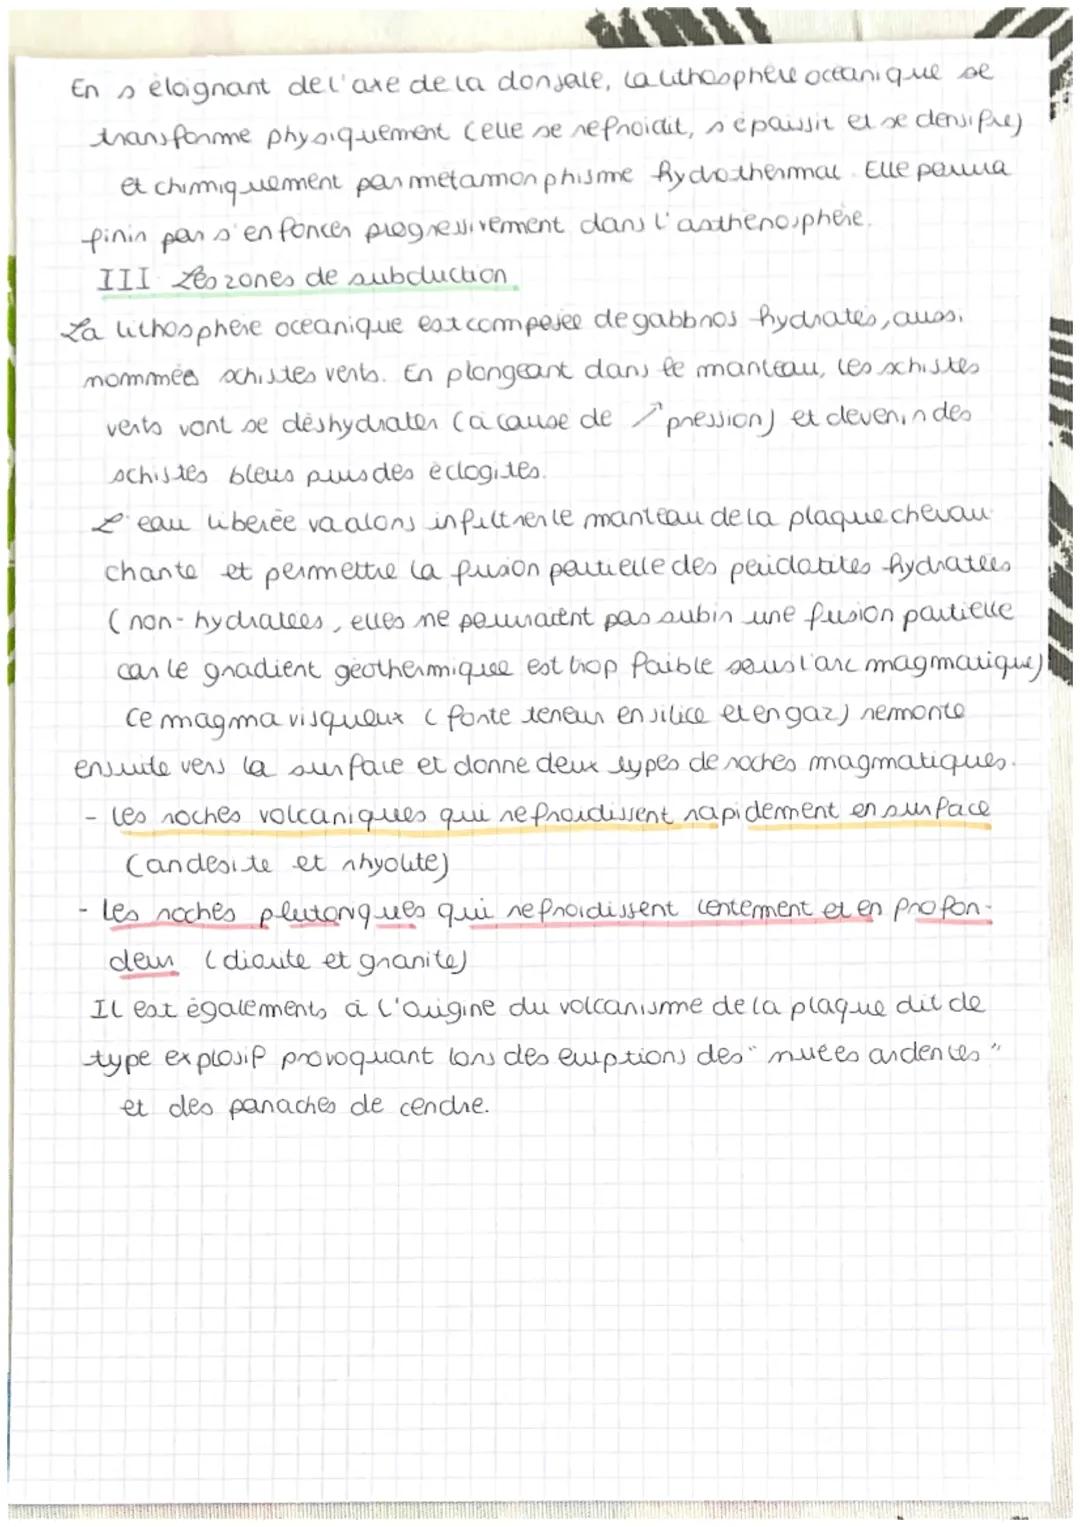 En s'éloignant de l'axe de la dorsale, la lithosphère océanique se
transforme physiquement (elle se refroidit, s'épaissit et se densifie)
et chimiquement par métamorphisme hydrothermal. Elle pourra
finir par s'enfoncer progressivement dans l'asthénosphère.
III Les zones de subduction
La lithosphère océanique est composée de gabbros hydratés, aussi
nommés schistes verts. En plongeant dans le manteau, les schistes
verts vont se déshydrater (à cause de ↗ pression) et devenir des
schistes bleus puis des éclogites.
L'eau libérée va alors infiltrer le manteau de la plaque chevau-
chante et permettre la fusion partielle des péridotites hydratées
(non-hydratées, elles ne pourraient pas subir une fusion partielle
car le gradient géothermique est trop faible sous l'arc magmatique)
Ce magma visqueux (forte teneur en silice et en gaz) remonte
ensuite vers la surface et donne deux types de roches magmatiques.
- les roches volcaniques qui refroidissent rapidement en surface
(andésite et rhyolite)
- les roches plutoniques qui refroidissent lentement et en profon-
deur (diorite et granite)
Il est également à l'origine du volcanisme de la plaque dit de
type explosif provoquant lors des éruptions des "nuées ardentes"
et des panaches de cendre.